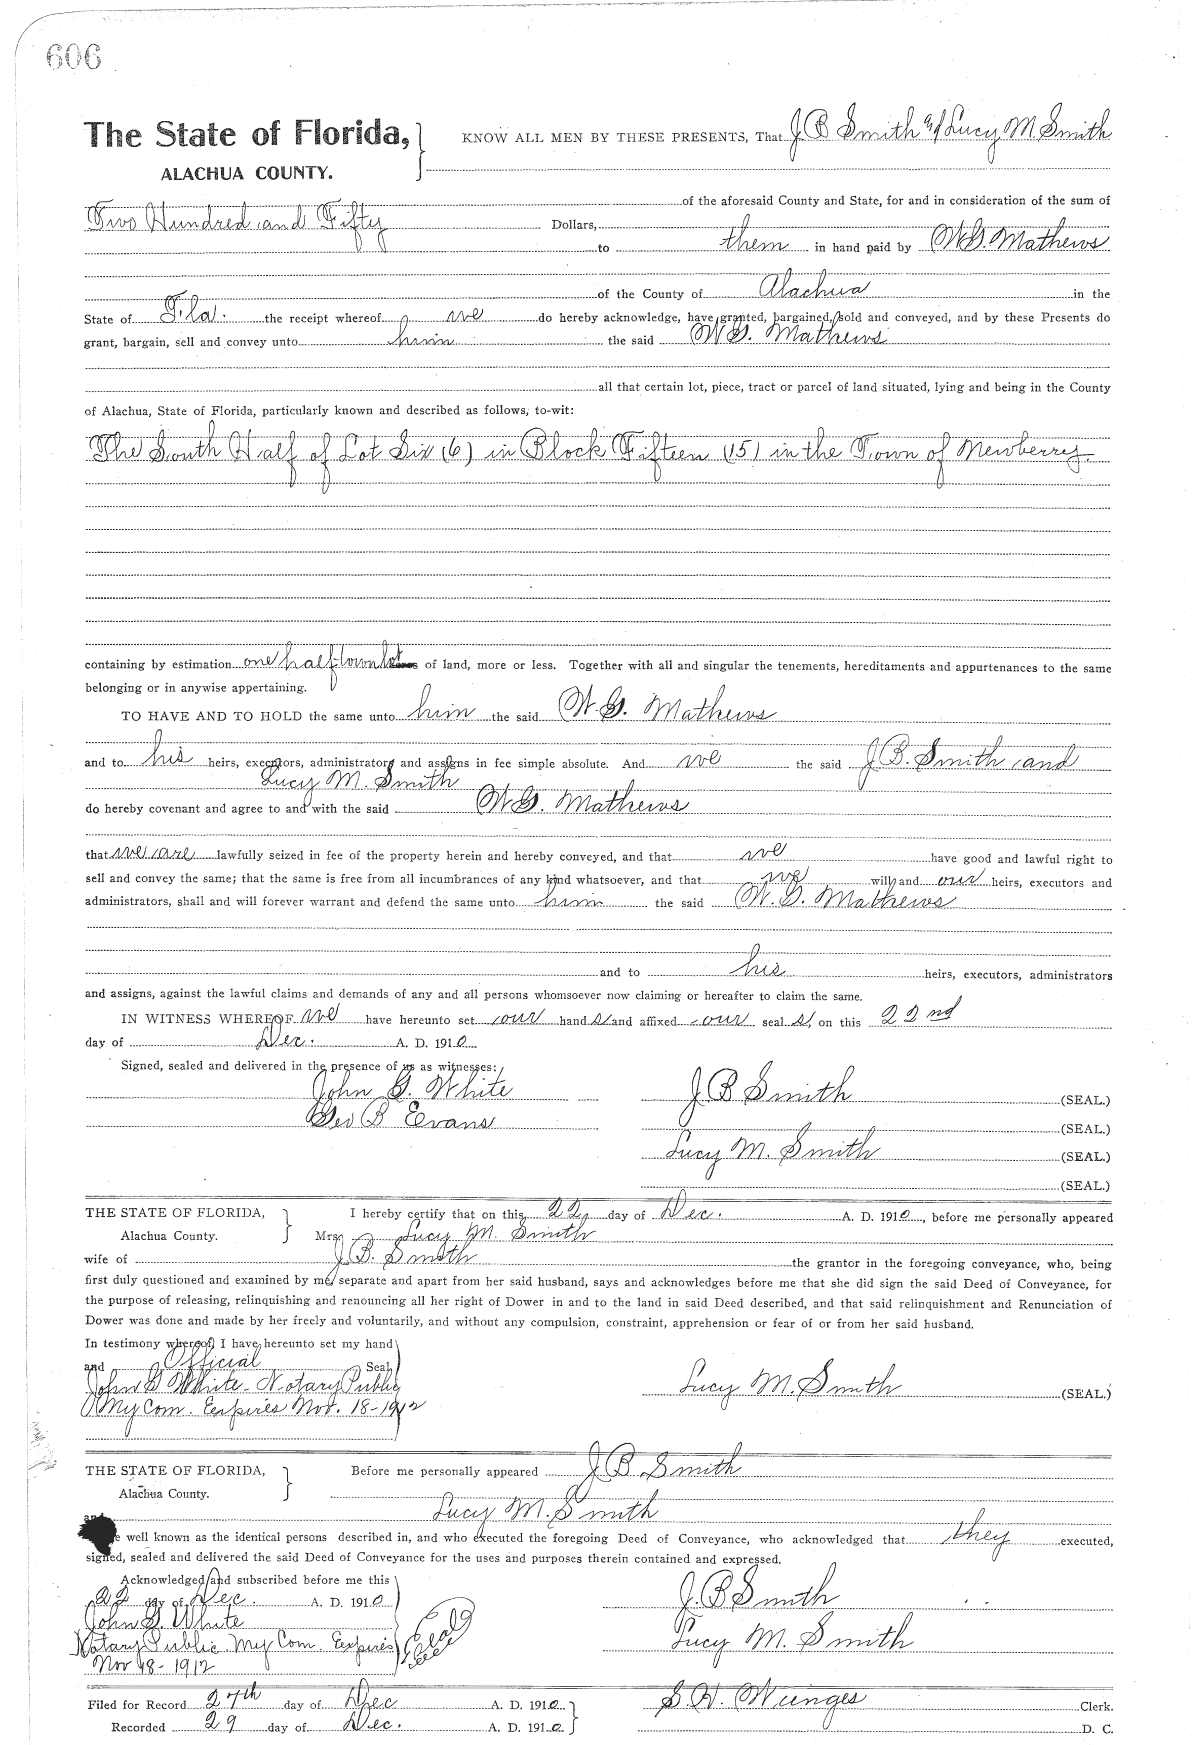 606
The State of Florida, KNOW ALL MEN BY THESE PRESENTS, That J B Smith and Lucy M Smith
ALACHUA COUNTY.
of the aforesaid County and State, for and in consideration of the sum of
Two Hundred and Fifty Dollars,
to them in hand paid by W.G. Mathews
of the County of Alachua in the
State of Fla. the receipt whereof we do hereby acknowledge, have granted, bargained, sold and conveyed, and by these Presents do
grant, bargain, sell and convey unto him the said W G. Mathews
all that certain lot, piece, tract or parcel of land situated, lying and being in the County
of Alachua, State of Florida, particularly known and described as follows, to-wit:
The South Half of Lot Six (6) in Block Fifteen (15) in the Town of Newberry.
containing by estimation one half town lot of land, more or less. Together with all and singular the tenements, hereditaments and appurtenances to the same
belonging or in anywise appertaining.
TO HAVE AND TO HOLD the same unto him the said W. G. Mathews
and to his heirs, executors, administrators and assigns in fee simple absolute. And we the said J B. Smith and
Lucy M. Smith
do hereby covenant and agree to and with the said W G. Mathews
that we are lawfully seized in fee of the property herein and hereby conveyed, and that we have good and lawful right to
sell and convey the same; that the same is free from all incumbrances of any kind whatsoever, and that we will and our heirs, executors and
administrators, shall and will forever warrant and defend the same unto him the said W. G. Mathews
and to his heirs, executors, administrators
and assigns, against the lawful claims and demands of any and all persons whomsoever now claiming or hereafter to claim the same.
IN WITNESS WHEREOF we have hereunto set our hand s and affixed our seal s, on this 22nd
day of Dec. A. D. 1910.
Signed, sealed and delivered in the presence of us as witnesses:
John G. White J B Smith (SEAL.)
Geo B Evans (SEAL.)
Lucy M. Smith (SEAL.)
(SEAL.)
THE STATE OF FLORIDA, I hereby certify that on this 22, day of Dec. A. D. 1910, before me personally appeared
Alachua County. Mrs. Lucy M. Smith
wife of J B. Smith the grantor in the foregoing conveyance, who, being
first duly questioned and examined by me, separate and apart from her said husband, says and acknowledges before me that she did sign the said Deed of Conveyance, for
the purpose of releasing, relinquishing and renouncing all her right of Dower in and to the land in said Deed described, and that said relinquishment and Renunciation of
Dower was done and made by her freely and voluntarily, and without any compulsion, constraint, apprehension or fear of or from her said husband.
In testimony whereof, I have hereunto set my hand
and Official Seal
John G White - Notary Public Lucy M. Smith (SEAL.)
My Com. Eexpires Nov. 18-1912
THE STATE OF FLORIDA, Before me personally appeared J B Smith
Alachua County.
and Lucy M. Smith
well known as the identical persons described in, and who executed the foregoing Deed of Conveyance, who acknowledged that they executed,
signed, sealed and delivered the said Deed of Conveyance for the uses and purposes therein contained and expressed.
Acknowledged and subscribed before me this
22 day of Dec. A. D. 1910 J. B Smith
John G. White Seal
Notary Public. My Com. Eexpires Lucy M. Smith
Nov 18-1912
Filed for Record 27th day of Dec A. D. 1910 S. H. Wienges Clerk.
Recorded 29 day of Dec. A. D. 1910. D. C.